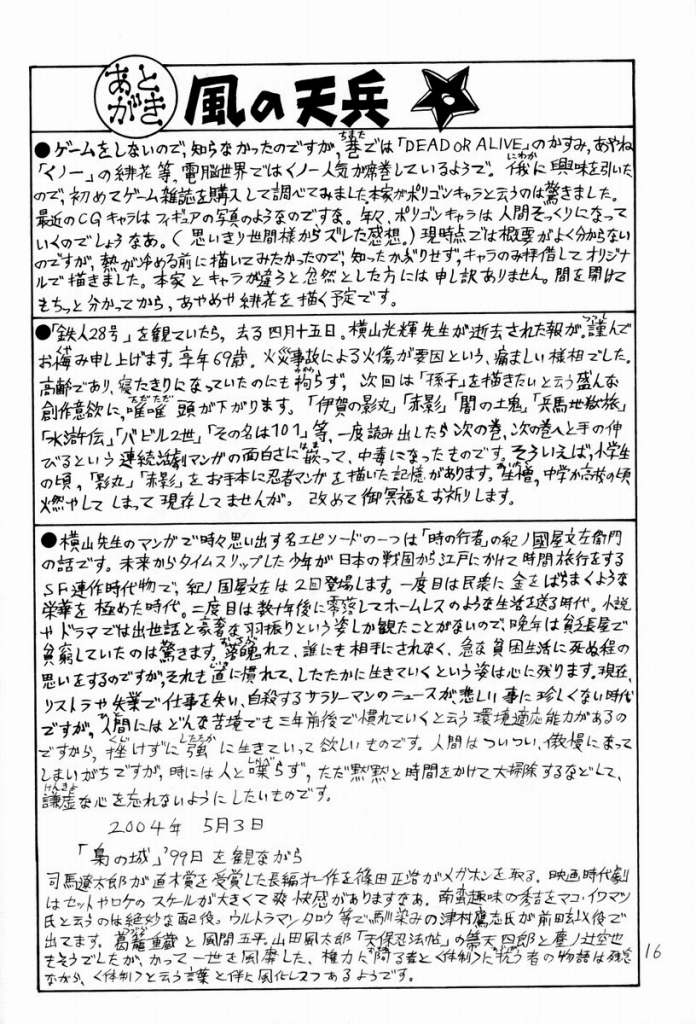 あとがき 風の天兵
●ゲームをしないので、知らなかったのですが、巷では「DEAD OR ALIVE」のかすみ、あやね
「くノ一」の緋花 等、電脳世界ではくノ一人気が席巻しているようで。俄に興味を引いた
ので、初めてゲーム雑誌を購入して調べてみました。本家がポリゴンキャラと云うのは驚きました。
最近のCGキャラは フィギュアの写真のようなのですな。年々、ポリゴンキャラは 人間そっくりになって
いくのでしょうなあ。(思いきり世間様からズレた感想。) 現時点では概要がよく分からない
のですが、熱が冷める前に描いてみたかったので、知ったかぶりせず、キャラのみ拝借して オリジナ
ルで描きました。本家とキャラが違うと忽然とした方には 申し訳ありません。間を開けて
もちっと分かってから、あやめや 緋花を 描く予定です。
●「鉄人28号」を観ていたら、去る四月十五日、横山光輝先生が逝去された報が。謹んで
お悔み申し上げます。享年69歳。火災事故による火傷が要因という、痛ましい様相でした。
高齢であり、寝たきりになっていたのにも拘らず、次回は「孫子」を描きたいと云う盛んな
創作意欲に、唯唯 頭が下がります。「伊賀の影丸」「赤影」「闇の土鬼」「兵馬地獄旅」
「水滸伝」「バビル2世」「その名は101」等、一度読み出したら次の巻、次の巻へと手の伸
びるという 連続活劇マンガの面白さに嵌って、中毒になったものです。そういえば、小学生
の頃、「影丸」「赤影」を お手本に忍者マンガを 描いた記憶があります。生憎、中学か高校の頃
燃やして しまって 現存してませんが。改めて 御冥福をお祈りします。
●横山先生のマンガで時々思い出す名エピソードの一つは「時の行者」の紀ノ國屋文左衛門
の話です。未来からタイムスリップした少年が 日本の戦国から江戸にかけて 時間旅行をする
SF連作時代物で、紀ノ国屋文左は 2回登場します。一度目は民衆に 金をばらまくような
栄華を 極めた時代。二度目は数十年後に零落してホームレスのような生活を送る時代。小説
や ドラマでは出世話と豪奢な羽振りという姿しか観たことがないので、晩年は 貧乏長屋で
貧窮していたのは驚きます。落魄れて、誰にも相手にされなく、急な 貧困生活に 死ぬ程の
思いをするのですが、それも直に慣れて、したたかに生きていくという姿は心に残ります。現在、
リストラや 失業で仕事を失い、自殺するサラリーマンのニュースが、悲しい事に珍しくない時代
ですが、人間にはどんな苦境でも三年前後で慣れていくと云う環境適応能力があるの
ですから、挫けずに強に生きていって欲しいものです。人間はついつい、傲慢になって
しまいがちですが、時には人と喋らず、ただ黙黙と時間をかけて大掃除するなどして、
謙虚な心を忘れないようにしたいものです。
2004年 5月3日
「梟の城」'99日を観ながら
司馬遼太郎が直木賞を受賞した長編第一作を篠田正浩がメガホンを取る。映画時代劇
はセットやロケのスケールが大きくて爽快感がありますなあ。南蛮趣味の秀吉をマコ・イワマツ
氏と云うのは絶妙な配役。ウルトラマンタロウ等で馴染みの津村鷹志氏が前田玄以役で
出てます。葛籠重蔵と風間五平。山田風太郎「天保忍法帖」の 天四郎と塵ノ辻空也
もそうでしたが、かって一世を風靡した、権力に 者と〈体制〉に抗う者の物語は残念
ながら、〈体制〉と云う言葉と伴に風化しつつあるようです。
16